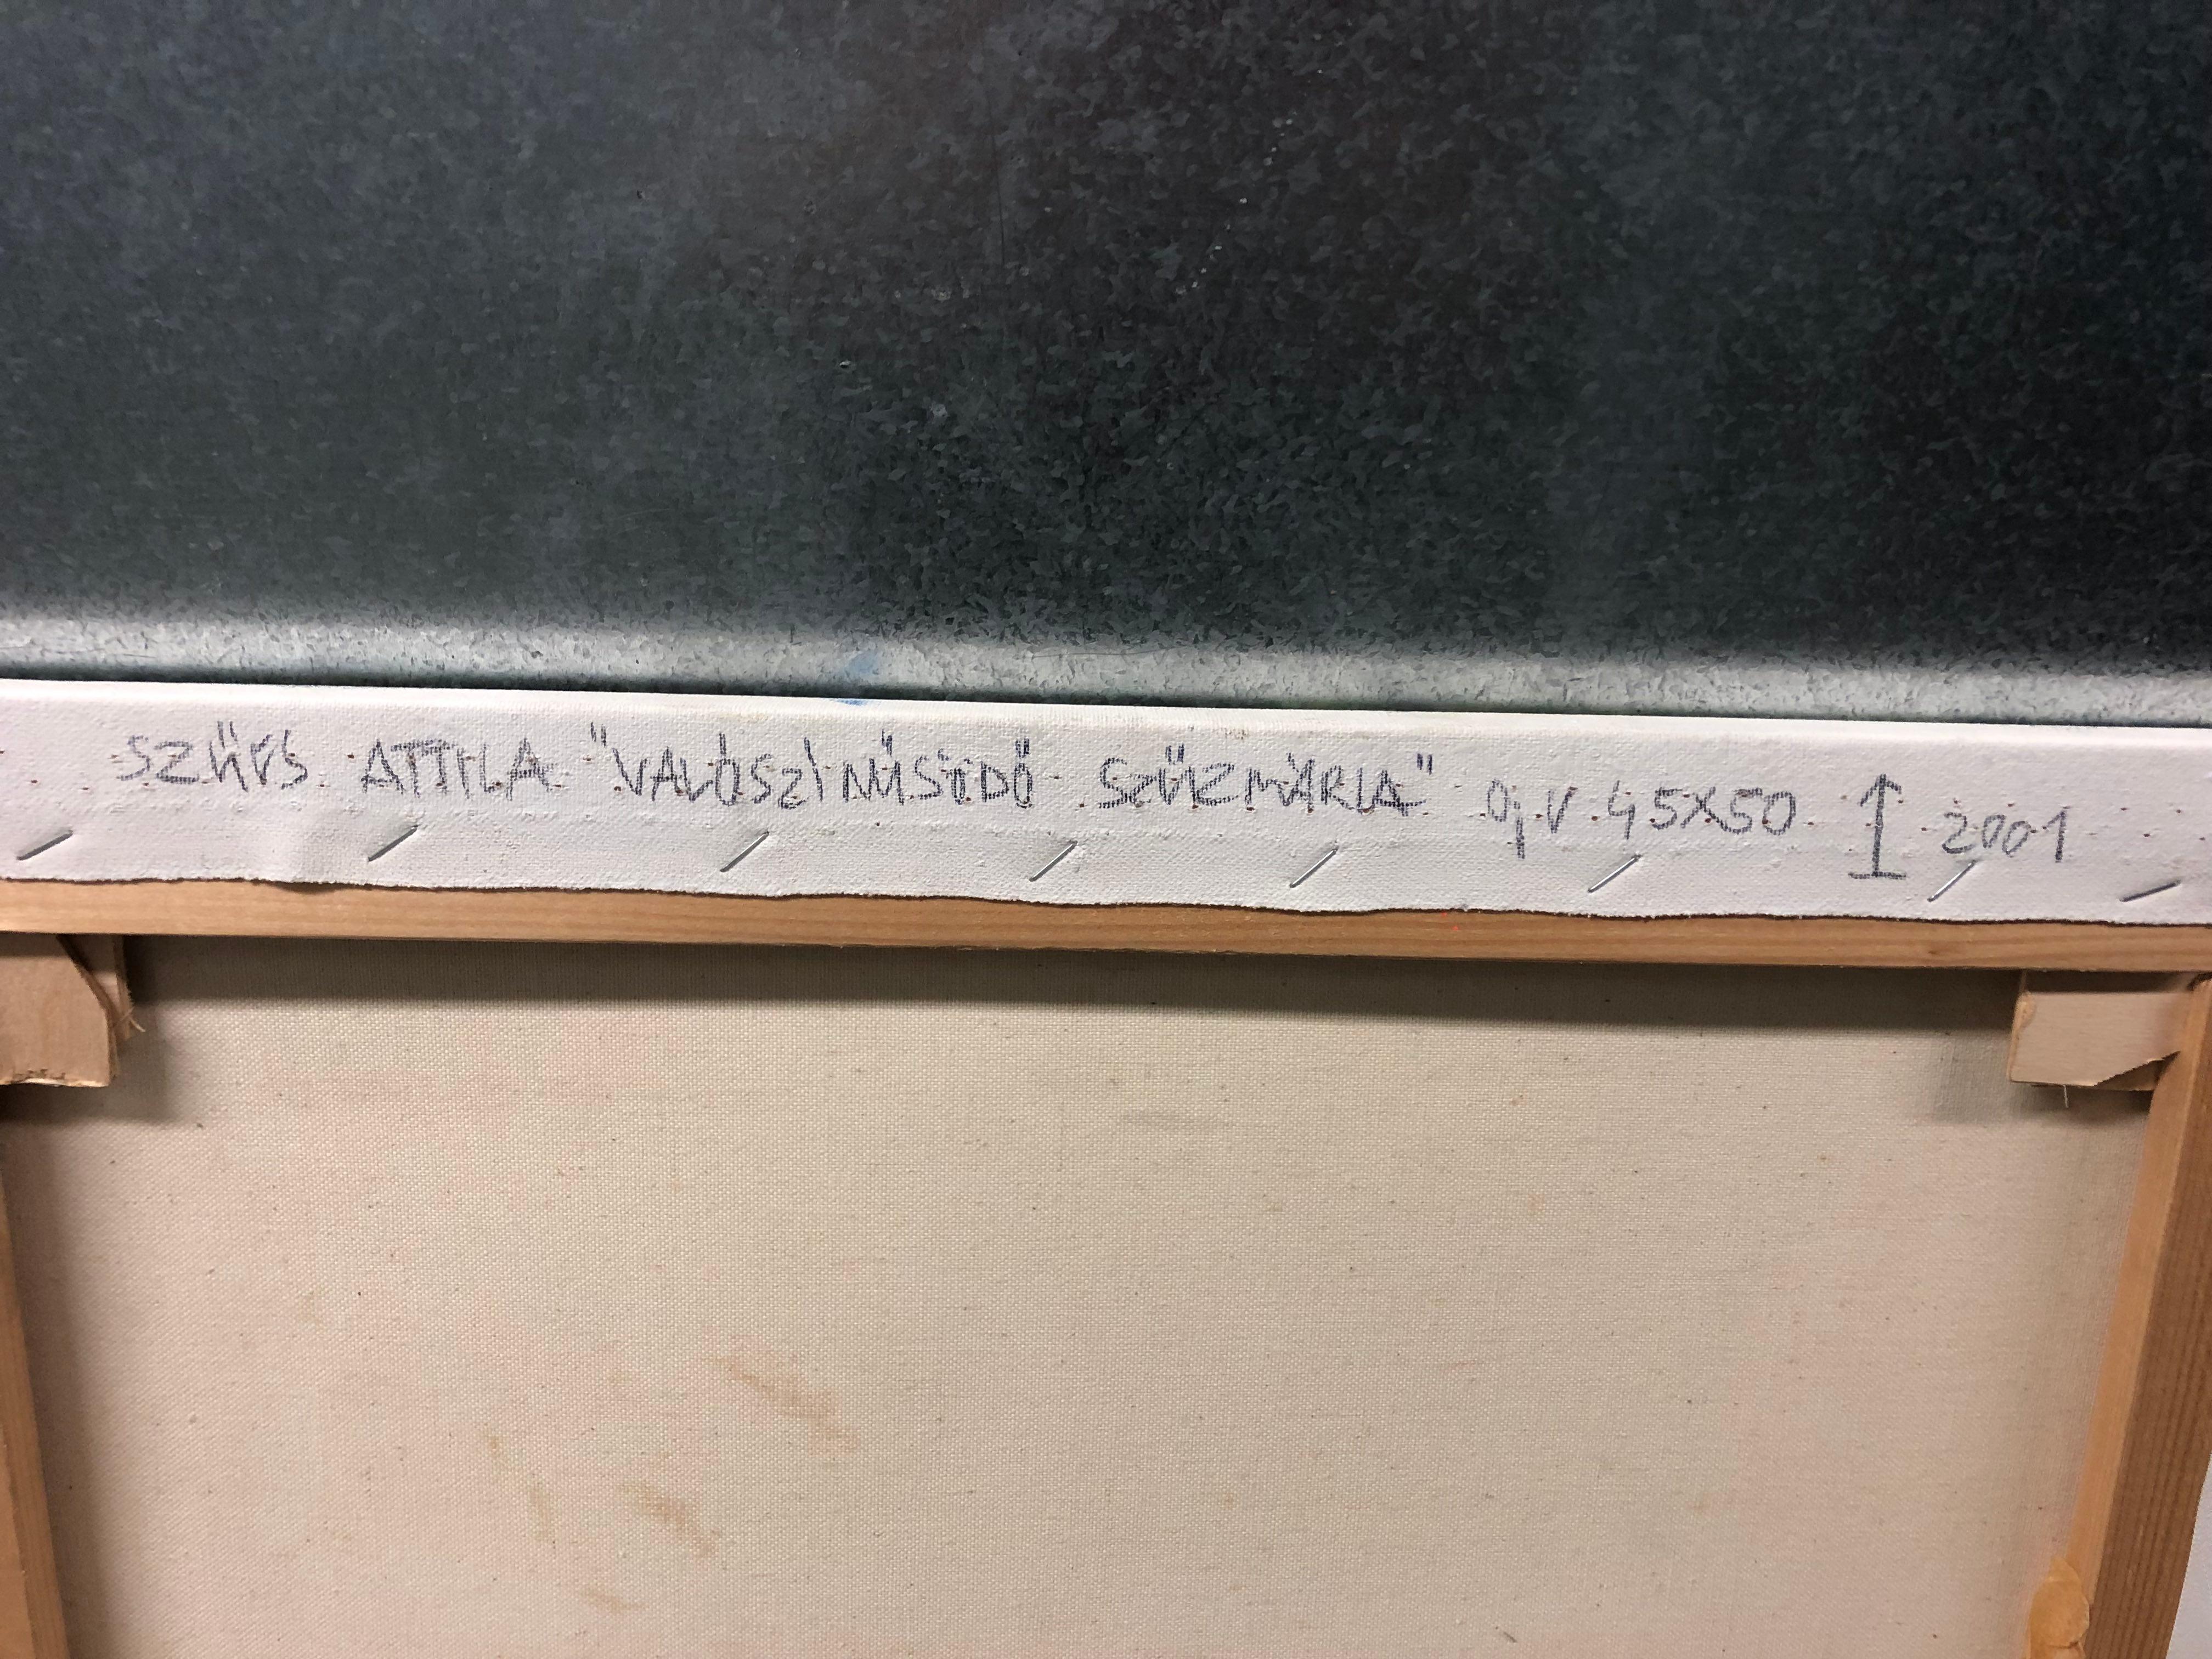 SZŰCS ATTILA "VALÓSZÍNŰSÖDŐ SZŰZMÁRIA" O,V 45X50 ↑ 2001